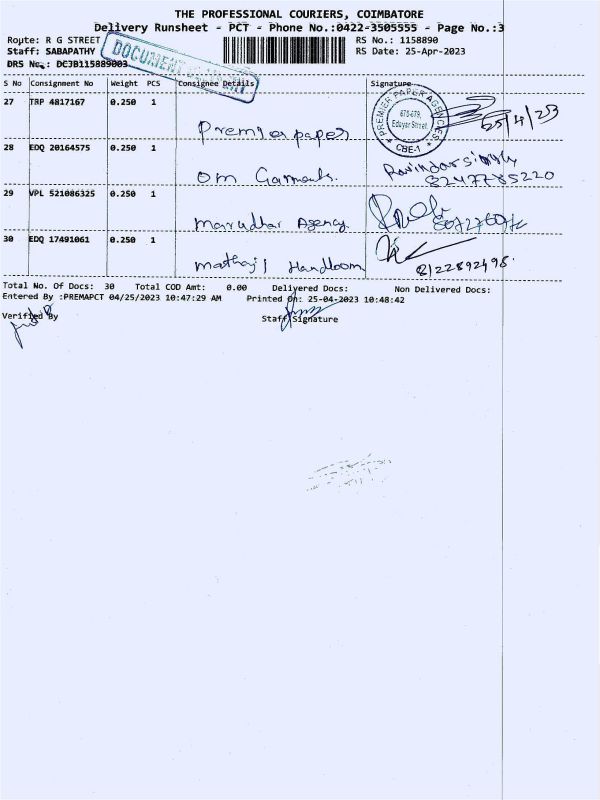 THE PROFESSIONAL COURIERS, COIMBATORE
Delivery Runsheet - PCT - Phone No.:0422-3505555 - Page No.:3
Route: R G STREET RS No.: 1158890
Staff: SABAPATHY RS Date: 25-Apr-2023
DRS No.: DCJB115889003
DOCUMENT
S No Consignment No Weight PCS Consignee Details Signature
27 TRP 4817167 0.250 1
Premier paper
PREMIER PAPER AGENCIES
Edayar Street,
CBE-1
25/4/23
28 EDQ 20164575 0.250 1
Om Garments.
Ravindar singh
8247785220
29 VPL 521086325 0.250 1
Marudhar Agency
30 EDQ 17491061 0.250 1
Mathaji Handloom
8122892498.
Total No. Of Docs: 30 Total COD Amt: 0.00 Delivered Docs: Non Delivered Docs:
Entered By :PREMAPCT 04/25/2023 10:47:29 AM Printed On: 25-04-2023 10:48:42
Verified By Staff Signature